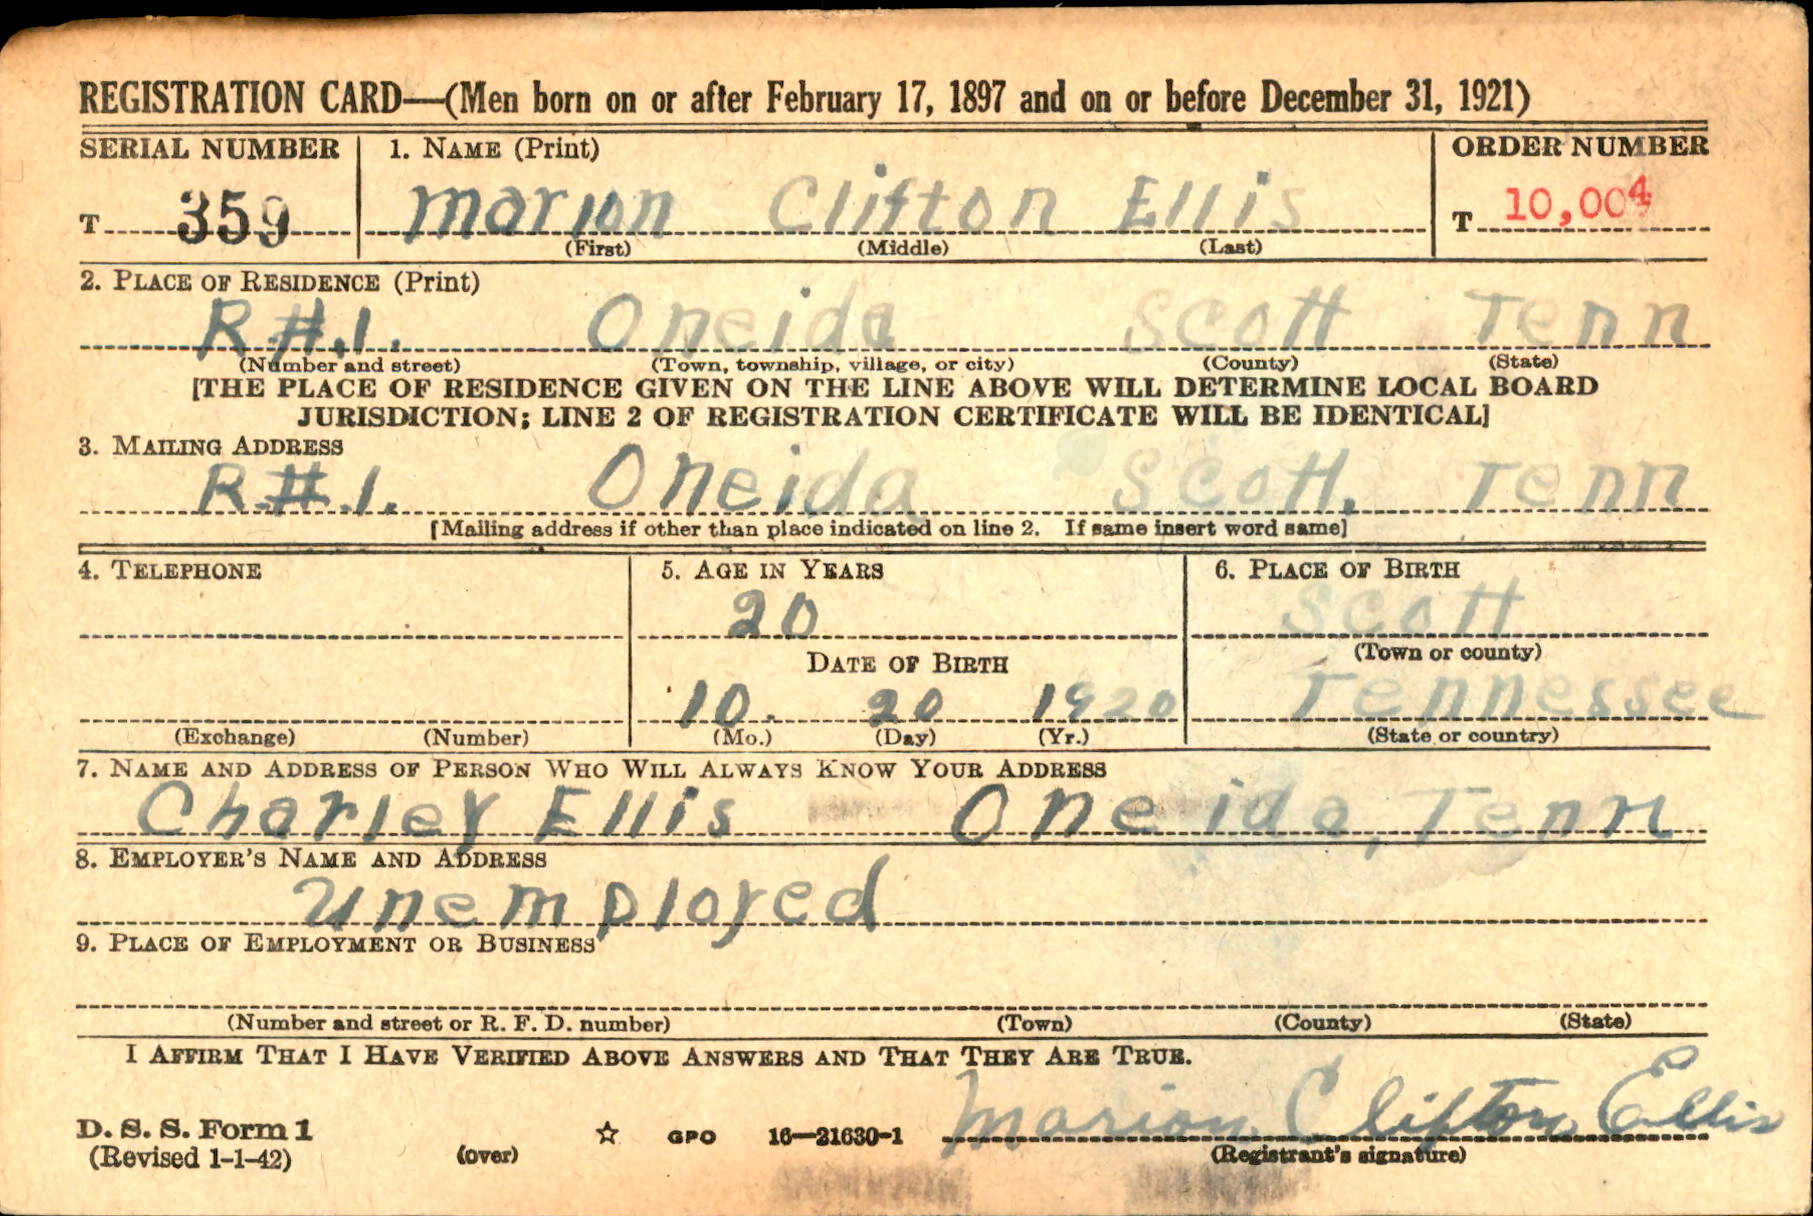 REGISTRATION CARD—(Men born on or after February 17, 1897 and on or before December 31, 1921)
SERIAL NUMBER 1. NAME (Print) ORDER NUMBER
T 359 Marion Clifton Ellis T 10,004
(First) (Middle) (Last)
2. PLACE OF RESIDENCE (Print)
R#.1. Oneida Scott Tenn
(Number and street) (Town, township, village, or city) (County) (State)
[THE PLACE OF RESIDENCE GIVEN ON THE LINE ABOVE WILL DETERMINE LOCAL BOARD
JURISDICTION; LINE 2 OF REGISTRATION CERTIFICATE WILL BE IDENTICAL]
3. MAILING ADDRESS
R.#.1. Oneida Scott. Tenn
[Mailing address if other than place indicated on line 2. If same insert word same]
4. TELEPHONE 5. AGE IN YEARS 6. PLACE OF BIRTH
20 Scott
DATE OF BIRTH (Town or county)
10. 20 1920 Tennessee
(Exchange) (Number) (Mo.) (Day) (Yr.) (State or country)
7. NAME AND ADDRESS OF PERSON WHO WILL ALWAYS KNOW YOUR ADDRESS
Charley Ellis Oneida, Tenn
8. EMPLOYER'S NAME AND ADDRESS
Unemployed
9. PLACE OF EMPLOYMENT OR BUSINESS
(Number and street or R. F. D. number) (Town) (County) (State)
I AFFIRM THAT I HAVE VERIFIED ABOVE ANSWERS AND THAT THEY ARE TRUE.
Marion Clifton Ellis
D. S. S. Form 1 GPO 16—21630-1
(Revised 1-1-42) (over) (Registrant's signature)